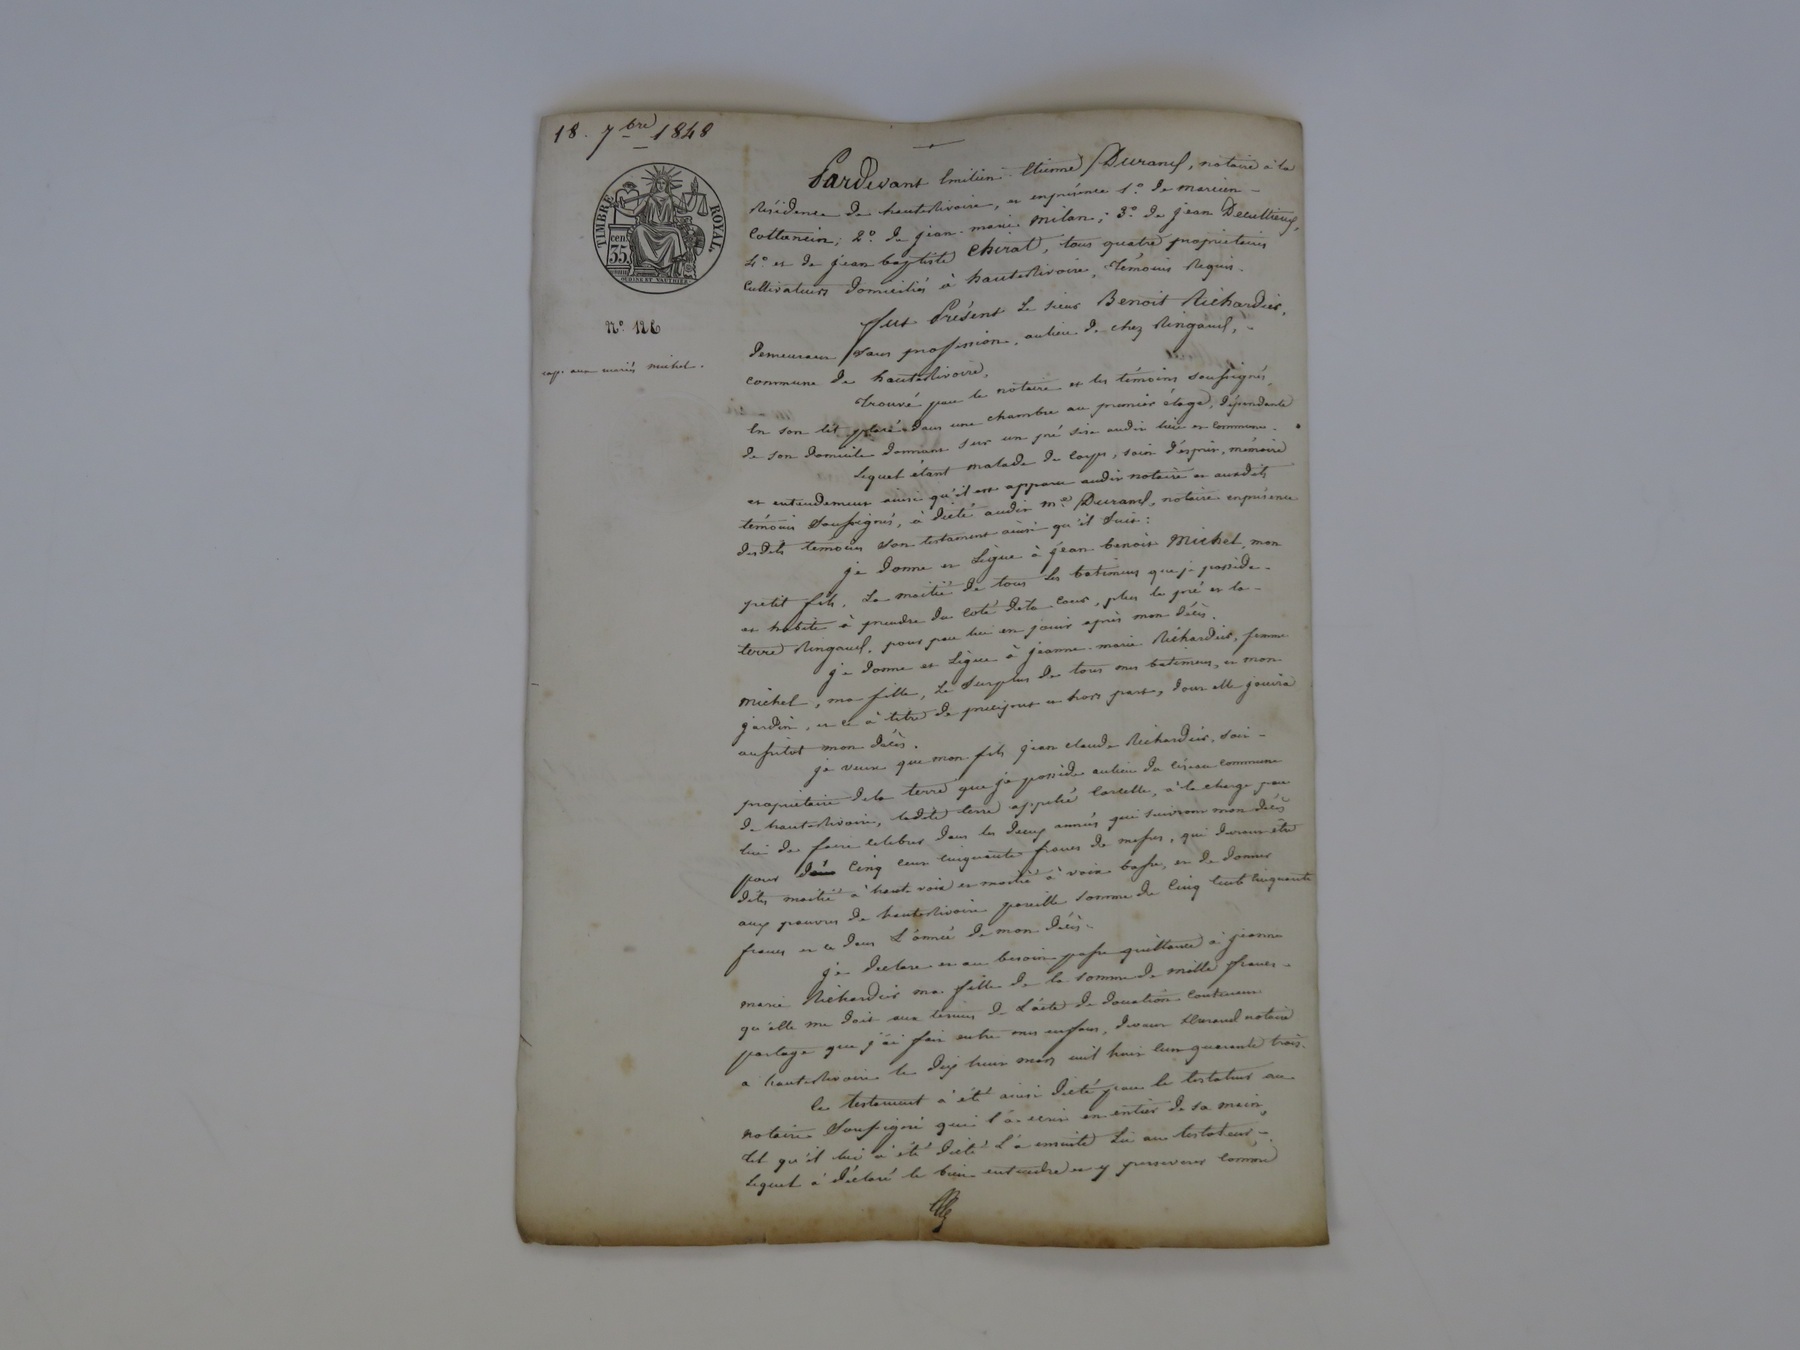 18. 7bre 1848
TIMBRE ROYAL
cen. 35.
N°. 128
exp. aux mariés Michel.
Pardevant Emilien Etienne Durand, notaire à la
Résidence de hauterivoire, en présence 1°. de
2°. de jean marie Milan; 3°. de jean
4°. et de jean baptiste Chirat, tous quatre propriétaires
Cultivateurs domiciliés à hauterivoire, témoins Requis.
fut Présent Le sieur Benoit Richardier,
demeurant sans profession, au lieu de chez Ringaud,
commune de hauterivoire,
Trouvé par le notaire et les témoins soussignés,
En son lit placé dans une chambre au premier étage, dépendante
de son domicile donnant sur un pré sise audit lieu et commune.
Lequel étant malade de Corps, sain d'esprit, mémoire
et entendement ainsi qu'il est apparu audit notaire et auxdits
témoins Soussignés, à dicté audit Me. Durand, notaire en présence
desdits temoins Son testament ainsi qu'il Suit:
je donne et Lègue à jean benoit Michel, mon
petit fils, La moitié de tous Les batimens que je possède
et habite à prendre du Coté dela Cour, plus le pré et la
terre Ringaud, pour par lui en jouir après mon décès.
je donne et Lègue à jeanne marie Richardier, femme
Michel, ma fille, Le Surplus de tous mes batimens, et mon
jardin, et ce à titre de préciput et hors part, dont elle jouira
aussitot mon décès.
je veux que mon fils jean claude Richardier, soit
propriétaire dela terre que je possède au lieu du commune
de hauterivoire, ladite terre appelée à la charge par
lui de faire célébrer dans les deux années qui suivront mon décès
pour Cinq cent cinquante francs de messes, qui devront être
dites moitié à haute voix et moitié à voix basse, et de donner
aux pauvres de hauterivoire pareille somme de Cinq Cents Cinquante
francs et ce dans L'année de mon décès.
je déclare et au besoin passe quittance à jeanne
marie Richardier ma fille de la somme de mille francs
qu'elle me doit aux termes de L'acte de donation Contenant
partage que j'ai fait entre mes enfans, devant Durand notaire
à hauterivoire le dix huit mars mil huit cent quarante trois.
Ce testament à été ainsi dicté par le testateur au
notaire Soussigné qui l'à écrit en entier de sa main,
tel qu'il lui à été dicté L'à ensuite Lu au testateur,
Lequel à déclaré le bien entendre et y perseverer comme